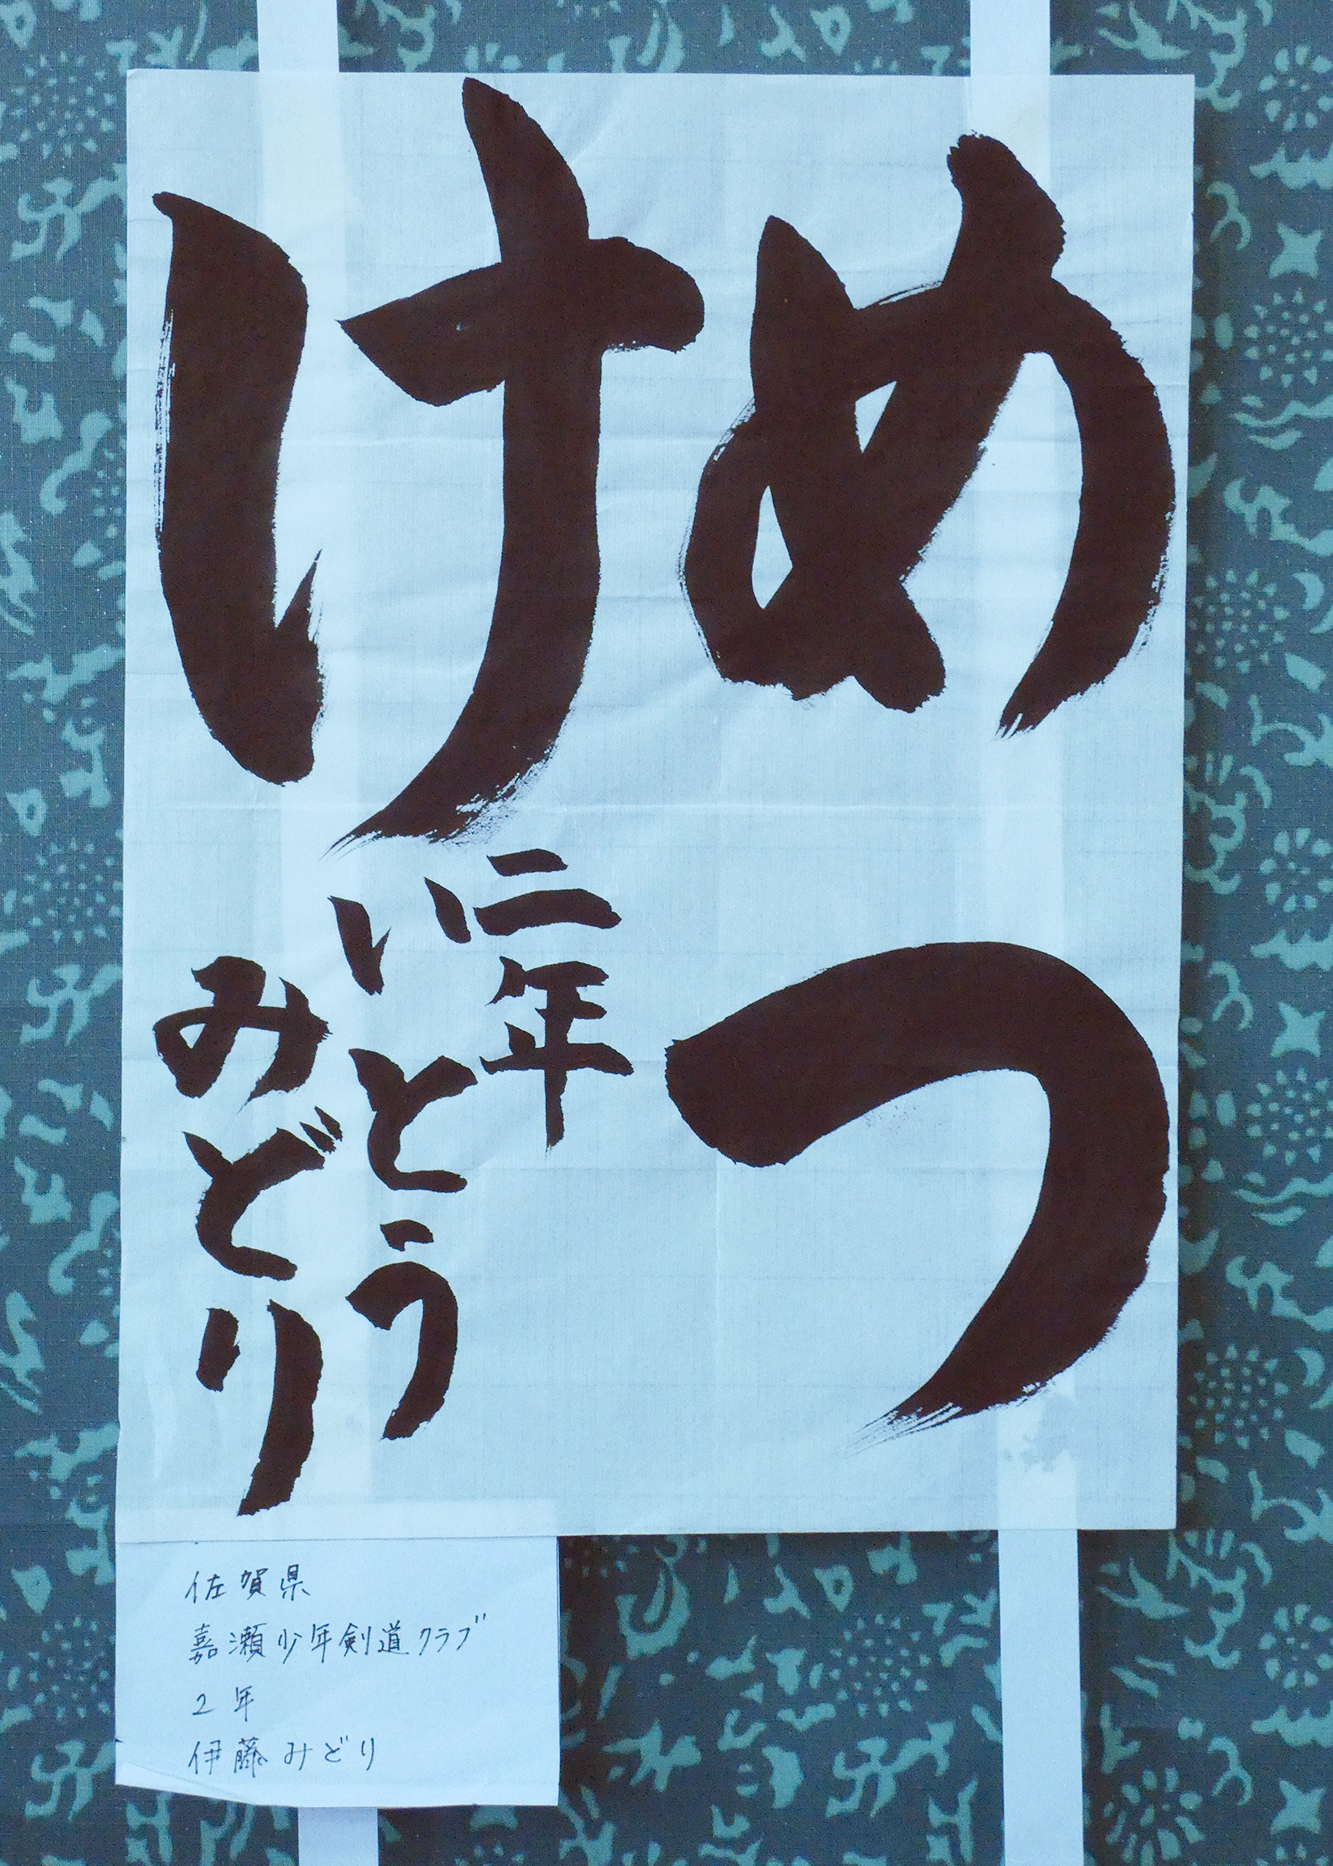 めつ
け
二年
いとう
みどり
佐賀県
嘉瀬少年剣道クラブ
2年
伊藤みどり